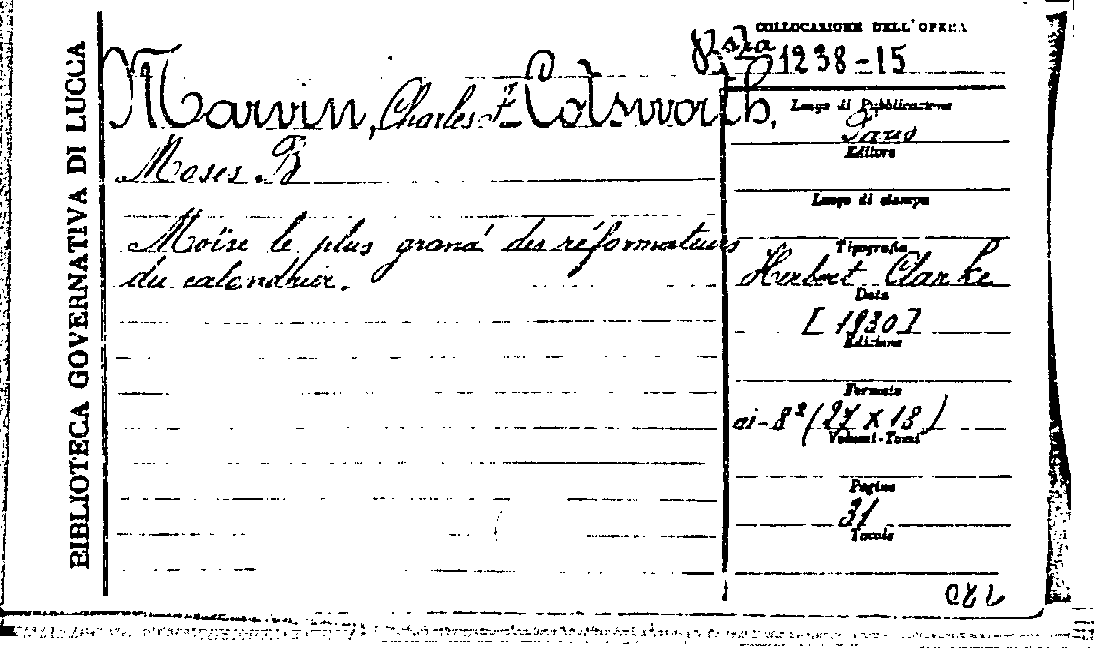 BIBLIOTECA GOVERNATIVA DI LUCCA
COLLOCAZIONE DELL'OPERA
1238-15
Marvin, Charles F. Cotsworth,
Moses B
Moïse le plus grand des réformateurs
du calendrier.
Luogo di Pubblicazione
Paris
Editore
Luogo di stampa
Tipografia
Herbert Clarke
Data
[1930]
Edizione
Formato
in-8° (27 x 18)
Volumi-Tomi
Pagine
31
Tavole